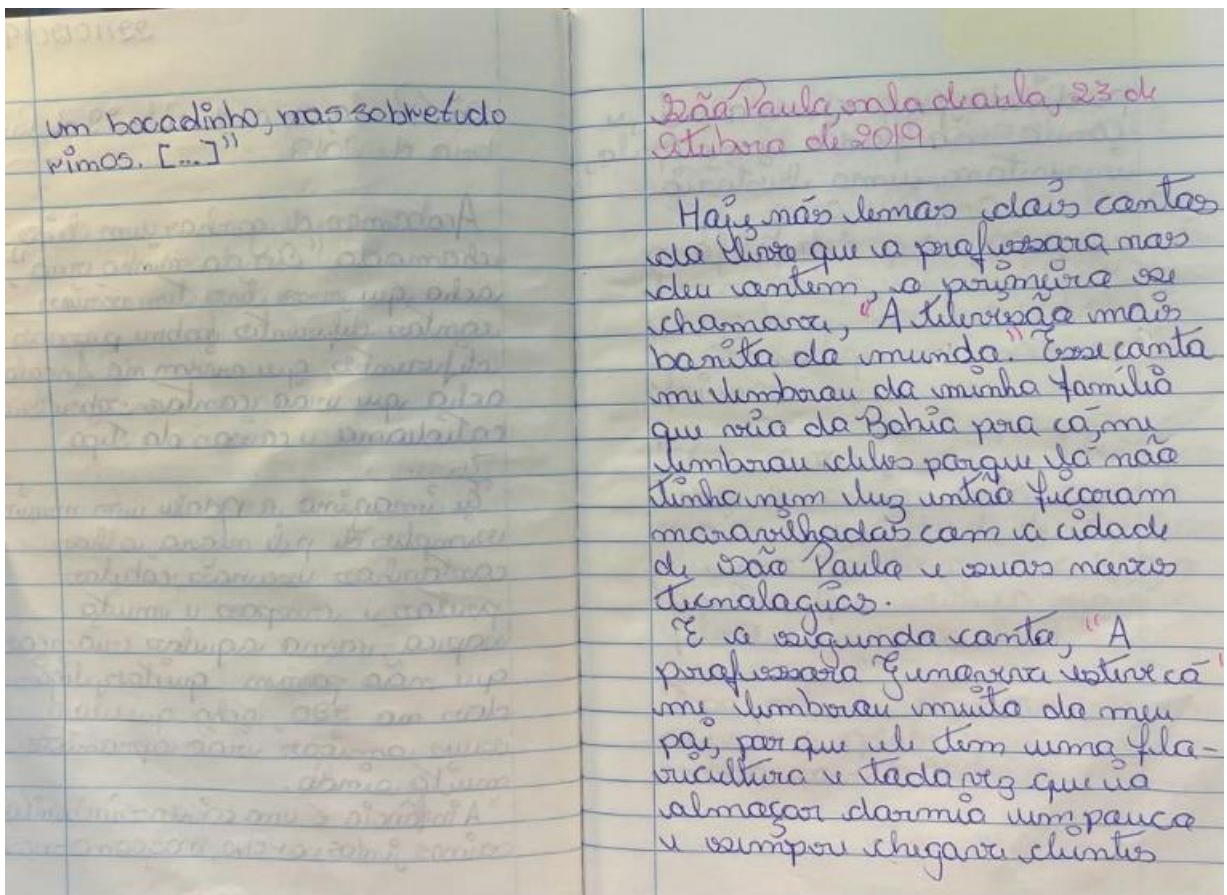 um bocadinho, mas sobretudo
rimos. [...]"
São Paulo, sala de aula, 23 de
Outubro de 2019
Hoje nós lemos dois contos
do livro que a professora nos
deu ontem, o primeiro se
chamava, "A televisão mais
bonita do mundo." Esse conto
me lembrou da minha família
que veio da Bahia pra cá, me
lembrou deles porque lá não
tinha nem luz então ficaram
maravilhados com a cidade
de São Paulo e suas novas
tecnologias.
E o segundo conto, "A
professora Genoveva esteve cá"
me lembrou muito do meu
pai, por que ele tem uma flo-
ricultura e toda vez que ia
almoçar dormia um pouco
e sempre chegava clientes